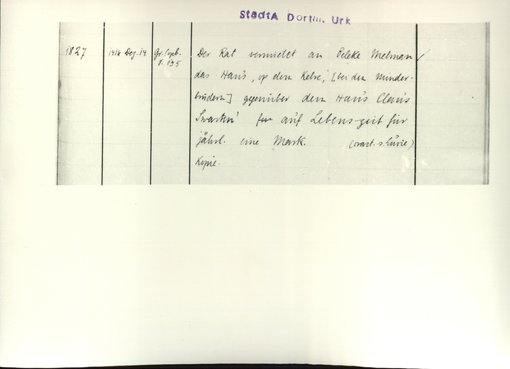 StadtA Dortm. Urk
1827 1414 Dez. 14 Der Rat vermietet an Teleke Melman
das Haus, op dem Kelre, [bei den Minder-
brüdern] gegenüber dem Haus Claus
Swarten auf Lebenszeit für
jährl. eine Mark.
Kopie.